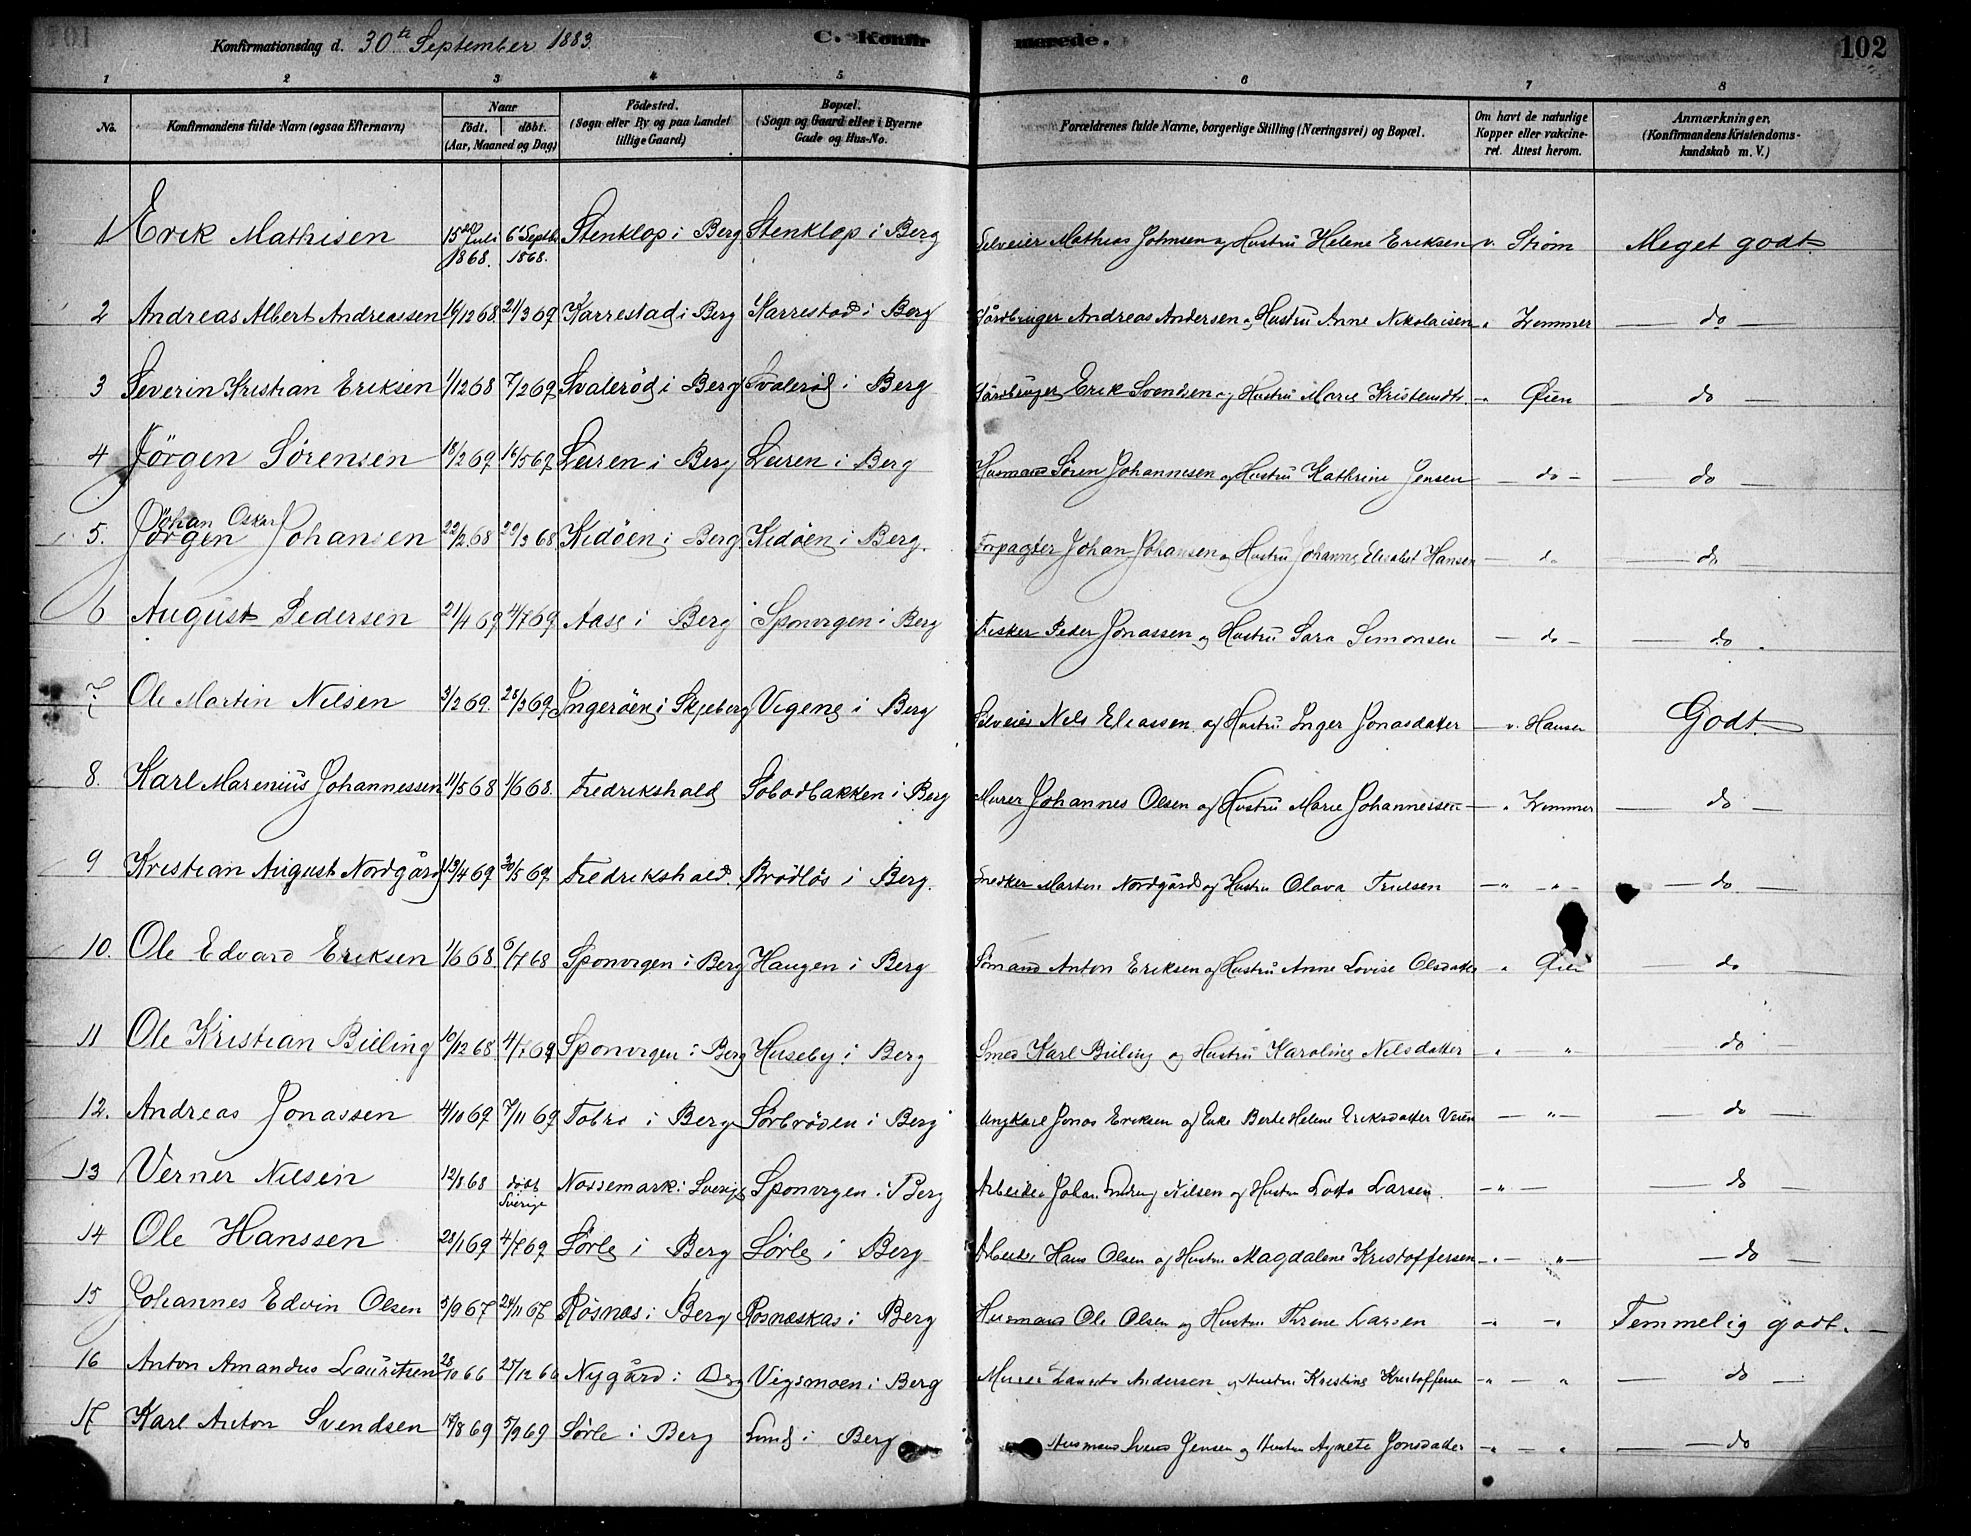 101 Konfirmationsdag d. 30te September 1883. C. Konfirmerede. 102
1 2 3 4 5 6 7 8
No. Konfirmandens fulde Navn (ogsaa Efternavn) Naar født. døbt. (Aar, Maaned og Dag) Födested. (Sogn eller By og paa Landet tillige Gaard) Bopæl. (Sogn og Gaard eller i Byerne Gade og Hus-No. Forældrenes fulde Navne, borgerlige Stilling (Næringsvei) og Bopæl. Om havt de naturlige Kopper eller vakcineret. Attest herom. Anmærkninger, (Konfirmandens Kristendomskundskab m. V.)
1 Erik Mathisen 15de Juli 1868. 6 Septbr 1868. Stenklop i Berg Stenklop i Berg Selveier Mathias Johnsen og Hustru Helene Eriksen v. Strøm Meget godt
2 Andreas Albert Andreassen 16/12 68 21/3 69 Karrestad i Berg Karrestad i Berg Gårdbruger Andreas Andersen og Hustru Anne Nikolaisen " Zemmer — do —
3 Severin Kristian Eriksen 1/12 68 7/2 69 Svalerød i Berg Svalerød i Berg Gårdbruger Erik Svendsen og Hustru Marie Kristensdtr. " Øien — do —
4 Jörgen Sörensen 18/2 69 16/5 69 Leiren i Berg Leiren i Berg Husmand Sören Johannesen og Hustru Kathrine Jensen — do — — do —
5. Johan Oskar Jörgen Johansen 22/2 68 29/3 68 Kidöen i Berg Kidöen i Berg. Forpagter Johan Johansen og Hustru Johanne Elisabet Hansen — do — do —
6 August Pedersen 21/4 69 4/7 69 Aase i Berg Sponvigen i Berg Fisker Peder Jonassen og Hustru Sara Simonsen — do — — do —
7 Ole Martin Nilsen 3/2 69. 28/3 69 Ingeröen i Skjeberg Vigene i Berg Selveier Nils Eliassen og Hustru Inger Jonasdatter — v. Hansen Godt
8. Karl Marenius Johannessen 11/5 68 1/6 68. Fredrikshald Söbodbakken i Berg Murer Johannes Olsen og Hustru Marie Johannessen — " Zemmer — do —
9 Kristian August Nordgård 13/4 69 30/5 69 Fredrikshald. Brödlös i Berg. Snedker Martin Nordgård og Hustru Olava Truelsen — " " — — do —
10. Ole Edvard Eriksen 1/6 68. 6/7 68 Sponvigen i Berg Haugen i Berg Sömand Anton Eriksen og Hustru Anne Lovise Olsdatter " Øien — do —
11 Ole Kristian Billing 10/12 68 4/7 69 Sponvigen i Berg Huseby i Berg Smed Karl Billing og Hustru Karoline Nilsdatter " " — do —
12. Andreas Jonassen 4/10 69 7/11 69 Tobro i Berg Sörbröden i Berg Ungkarl Jonas Eriksen og Enke Berte Helene Eriksdatter — " — — do —
13 Verner Nilsen 12/8 68 döbt Sverige Nossemark i Sverige Sponvigen i Berg Arbeider Johan Nilsen og Hustru Lotta Larsen. — " — — do —
14 Ole Hanssen 28/1 69 4/7 69 Sörle i Berg Sörle i Berg Arbeider Hans Olsen og Hustru Magdalene Kristoffersen — " — " — do —
15 Johannes Edvin Olsen 5/9 67 24/11 67 Rösnæs i Berg Rosnæskas i Berg Husmand Ole Olsen og Hustru Threne Larsen — " — Temmelig godt. —
16 Anton Amandus Lauritsen 28/10 66 25/12 66 Nygård i Berg Vigsmoen i Berg Murer Laurits Andersen og Hustru Kristine Kristoffersen — " — " — do —
17 Karl Anton Svendsen 14/8 69 5/9 69 Sörle i Berg Lund i Berg Husmand Svend Jensen og Hustru Agnete Jonsdatter — " — " — do